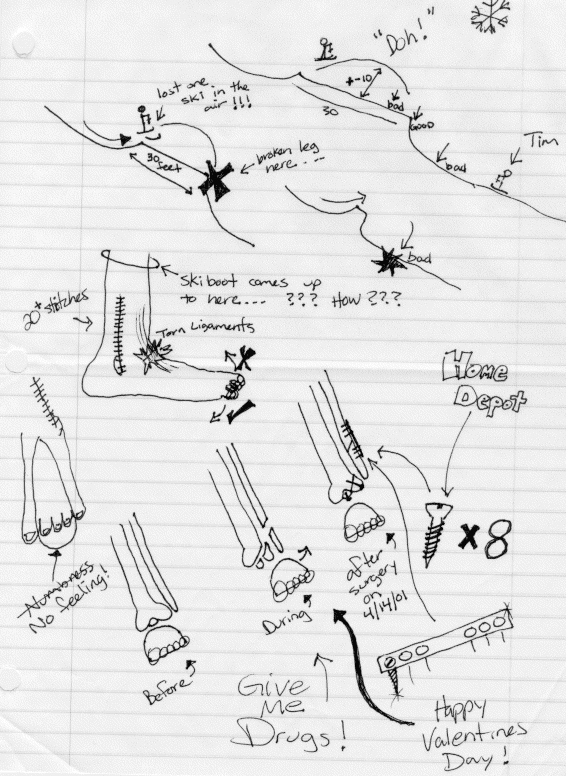 "Doh!"
lost one
ski in the
air!!!
+-10
30
bad
GOOD
bad
Tim
30
feet
broken leg
here....
bad
Ski boot comes up
to here.... ??? How???
20+ stitches
Torn Ligaments
Home
Depot
x8
Numbness
No feeling!
Before
During
after
surgery
on
4/14/01
Give
Me
Drugs!
Happy
Valentines
Day!